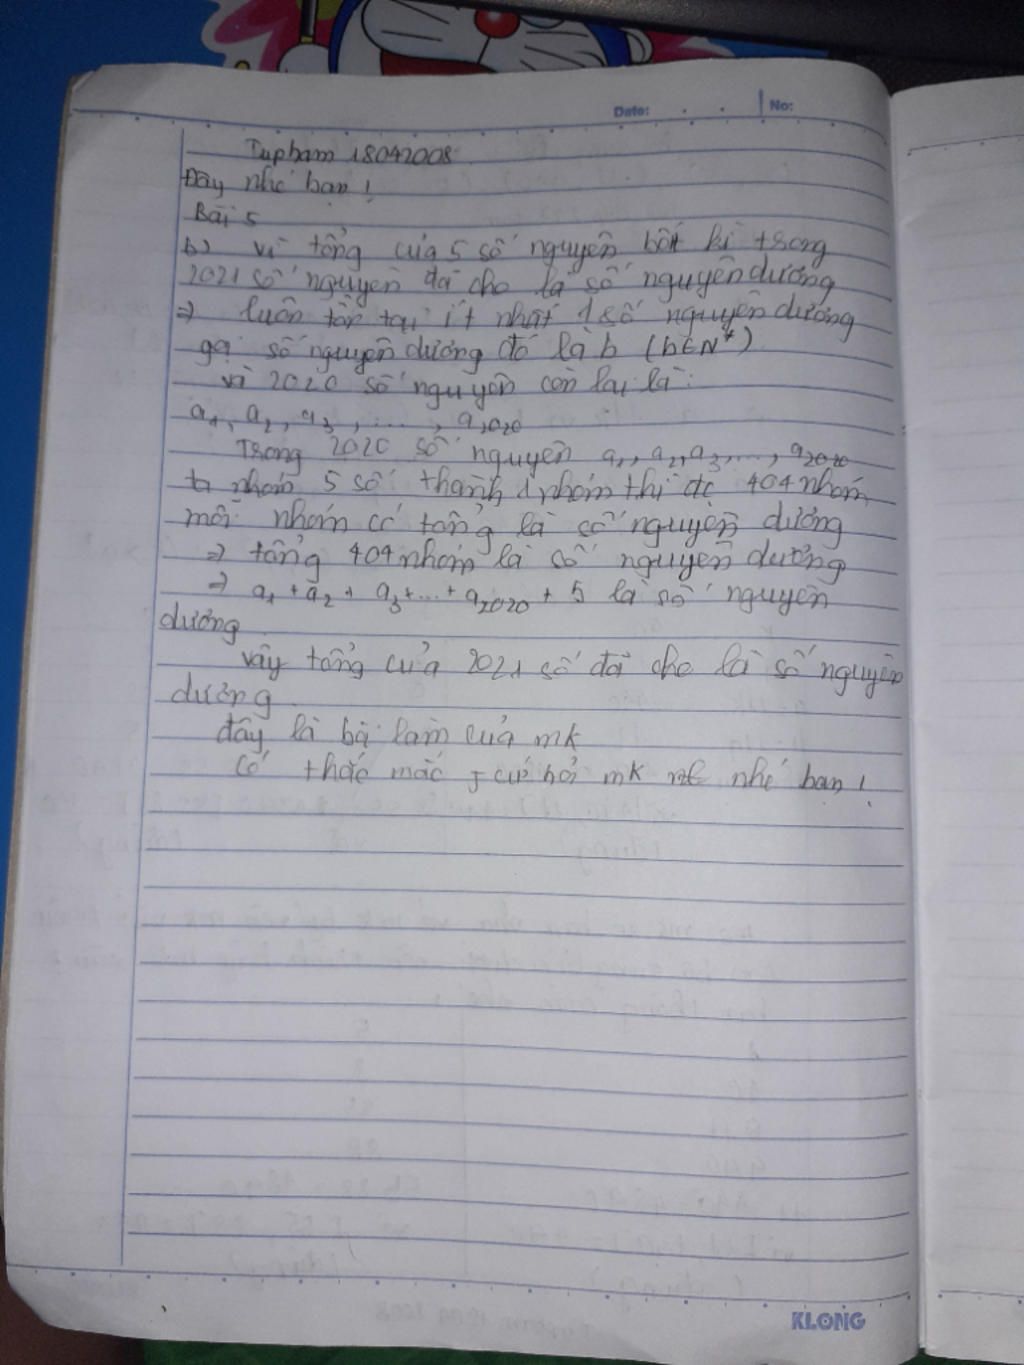 Date: No:
Tupham 18042008
Đây nhé bạn !
Bài 5
b) vì tổng của 5 số nguyên bất kì trong
2021 số nguyên đã cho là số nguyên dương
=> luôn tồn tại ít nhất 1 số nguyên dương
gọi số nguyên dương đó là b (b∈N*)
vì 2020 số nguyên còn lại là:
a1, a2, a3, ...., a2020
Trong 2020 số nguyên a1, a2, a3, ..., a2020
ta nhóm 5 số thành 1 nhóm thì đc 404 nhóm
mỗi nhóm có tổng là số nguyên dương
=> tổng 404 nhóm là số nguyên dương
=> a1 + a2 + a3 + ... + a2020 + 5 là số nguyên
dương
vậy tổng của 2021 số đã cho là số nguyên
dương
đây là bài làm của mk
Có thắc mắc j cứ hỏi mk nhé bạn !
KLONG